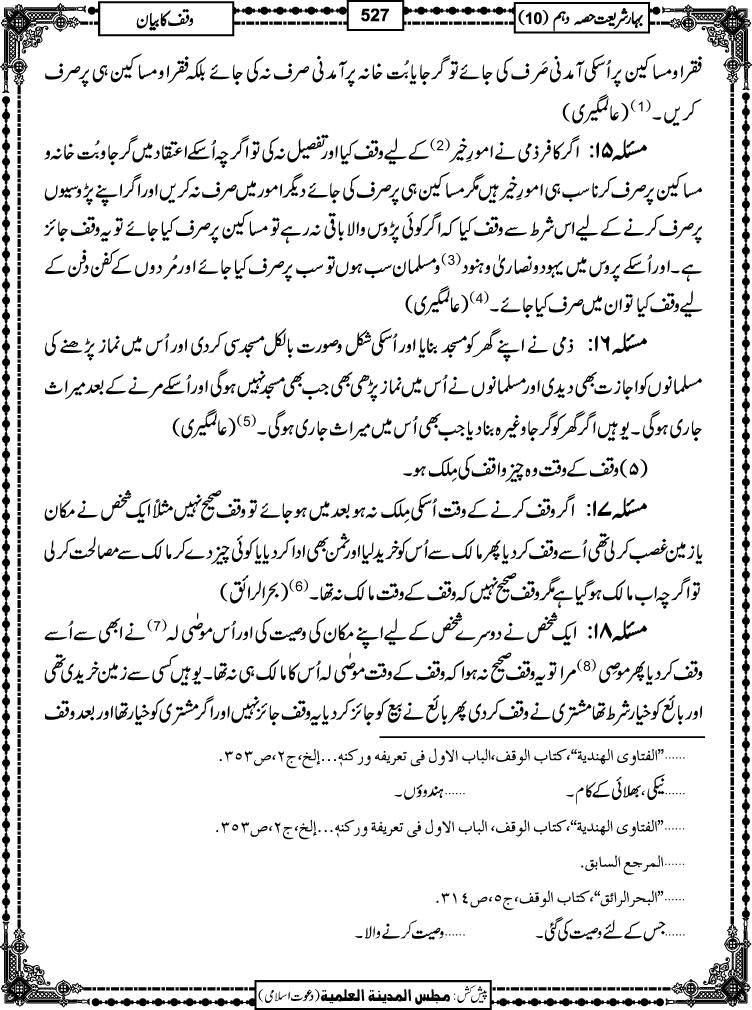 بہار شریعت حصہ دہم (10)
527
وقف کا بیان
فقرا و مساکین پر اُسکی آمدنی صَرف کی جائے تو گرجا یا بُت خانہ پر آمدنی صرف نہ کی جائے بلکہ فقرا و مساکین ہی پر صرف
کریں۔(1) (عالمگیری)
مسئلہ ۱۵: اگر کافر ذمی نے امورِ خیر(2) کے لیے وقف کیا اور تفصیل نہ کی تو اگرچہ اُسکے اعتقاد میں گرجا و بُت خانہ و
مساکین پر صرف کرنا سب ہی امورِ خیر ہیں مگر مساکین ہی پر صرف کی جائے دیگر امور میں صرف نہ کریں اور اگر اپنے پڑوسیوں
پر صرف کرنے کے لیے اس شرط سے وقف کیا کہ اگر کوئی پڑوس والا باقی نہ رہے تو مساکین پر صرف کیا جائے تو یہ وقف جائز
ہے۔ اور اُسکے پروس میں یہود و نصاریٰ و ہنود(3) و مسلمان سب ہوں تو سب پر صرف کیا جائے اور مُردوں کے کفن دفن کے
لیے وقف کیا تو ان میں صرف کیا جائے۔(4) (عالمگیری)
مسئلہ ۱۶: ذمی نے اپنے گھر کو مسجد بنایا اور اُسکی شکل و صورت بالکل مسجد سی کر دی اور اُس میں نماز پڑھنے کی
مسلمانوں کو اجازت بھی دیدی اور مسلمانوں نے اُس میں نماز پڑھی بھی جب بھی مسجد نہیں ہوگی اور اُسکے مرنے کے بعد میراث
جاری ہوگی۔ یوہیں اگر گھر کو گرجا وغیرہ بنا دیا جب بھی اُس میں میراث جاری ہوگی۔(5) (عالمگیری)
(۵) وقف کے وقت وہ چیز واقف کی مِلک ہو۔
مسئلہ ۱۷: اگر وقف کرنے کے وقت اُسکی مِلک نہ ہو بعد میں ہو جائے تو وقف صحیح نہیں مثلاً ایک شخص نے مکان
یا زمین غصب کر لی تھی اُسے وقف کر دیا پھر مالک سے اُس کو خرید لیا اور ثمن بھی ادا کر دیا یا کوئی چیز دے کر مالک سے مصالحت کر لی
تو اگرچہ اب مالک ہو گیا ہے مگر وقف صحیح نہیں کہ وقف کے وقت مالک نہ تھا۔(6) (بحر الرائق)
مسئلہ ۱۸: ایک شخص نے دوسرے شخص کے لیے اپنے مکان کی وصیت کی اور اُس موصٰی لہ(7) نے ابھی سے اُسے
وقف کر دیا پھر موصِی(8) مرا تو یہ وقف صحیح نہ ہوا کہ وقف کے وقت موصٰی لہ اُس کا مالک ہی نہ تھا۔ یوہیں کسی سے زمین خریدی تھی
اور بائع کو خیار شرط تھا مشتری نے وقف کر دی پھر بائع نے بیع کو جائز کر دیا یہ وقف جائز نہیں اور اگر مشتری کو خیار تھا اور بعد وقف
......"الفتاوى الهندية"،كتاب الوقف،الباب الاول فى تعريفه وركنه...إلخ،ج۲،ص۳۵۳.
......نیکی، بھلائی کے کام۔ ......ہندوؤں۔
......"الفتاوى الهندية"،كتاب الوقف، الباب الاول فى تعريفة وركنه...إلخ،ج۲،ص۳۵۳.
......المرجع السابق.
......"البحر الرائق"،كتاب الوقف،ج۵،ص۳۱۴.
......جس کے لئے وصیت کی گئی۔ ......وصیت کرنے والا۔
پیش کش: مجلس المدینة العلمیة (دعوت اسلامی)